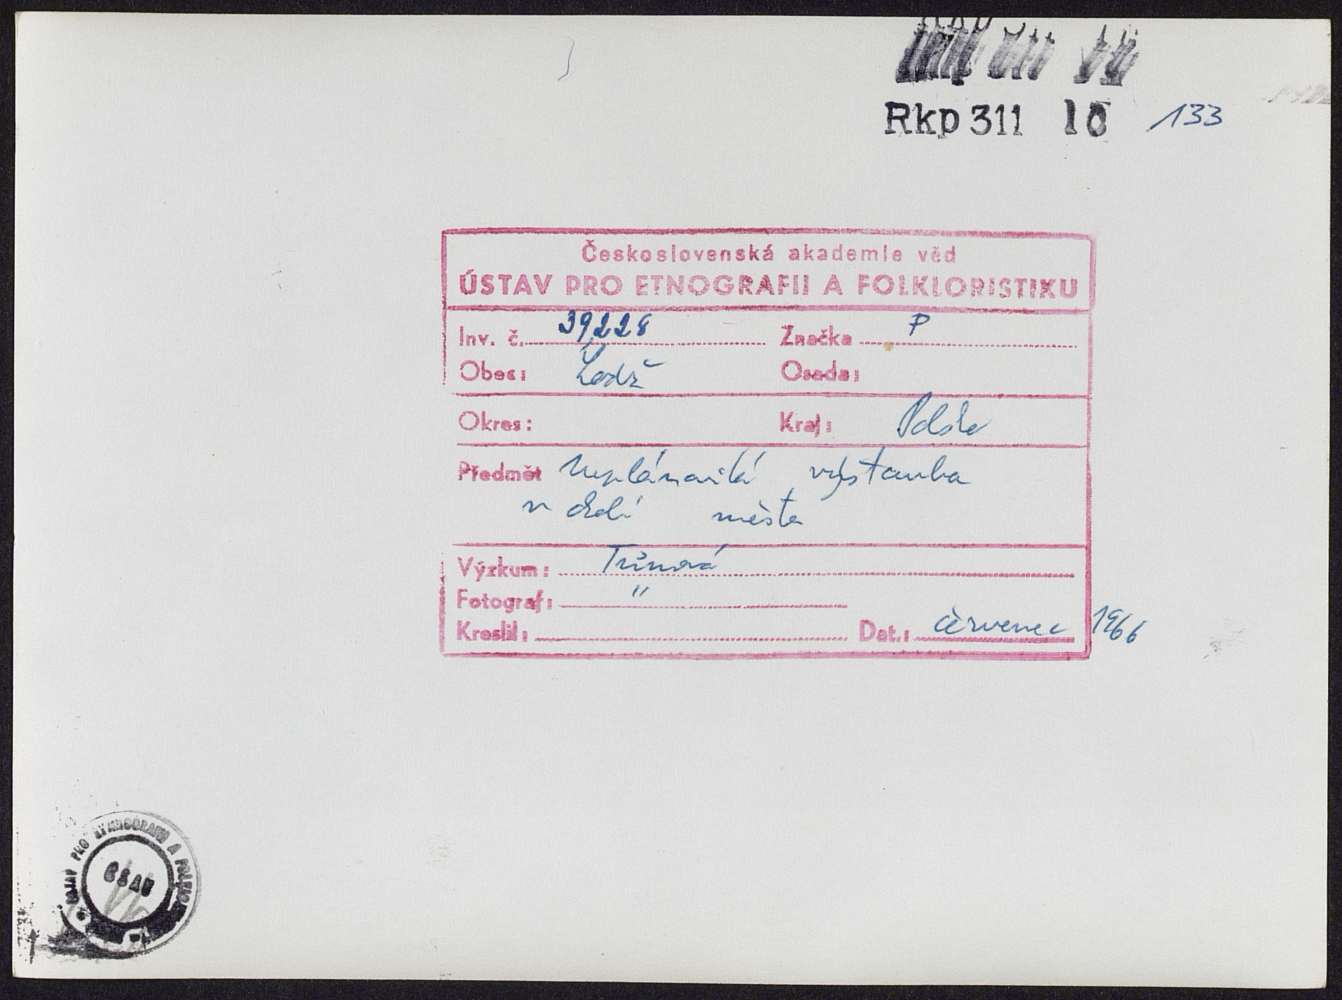 Rkp 311 133
Československá akademie věd
ÚSTAV PRO ETNOGRAFII A FOLKLORISTIKU
Inv. č. 39228 Značka P
Obec: Lodž Osada:
Okres: Kraj: Polsko
Předmět Neplánovitá výstavba
v okolí města
Výzkum:
Fotograf: "
Kreslil: Dat.: červenec 1966
ÚSTAV PRO ETNOGRAFII A
ČSAV